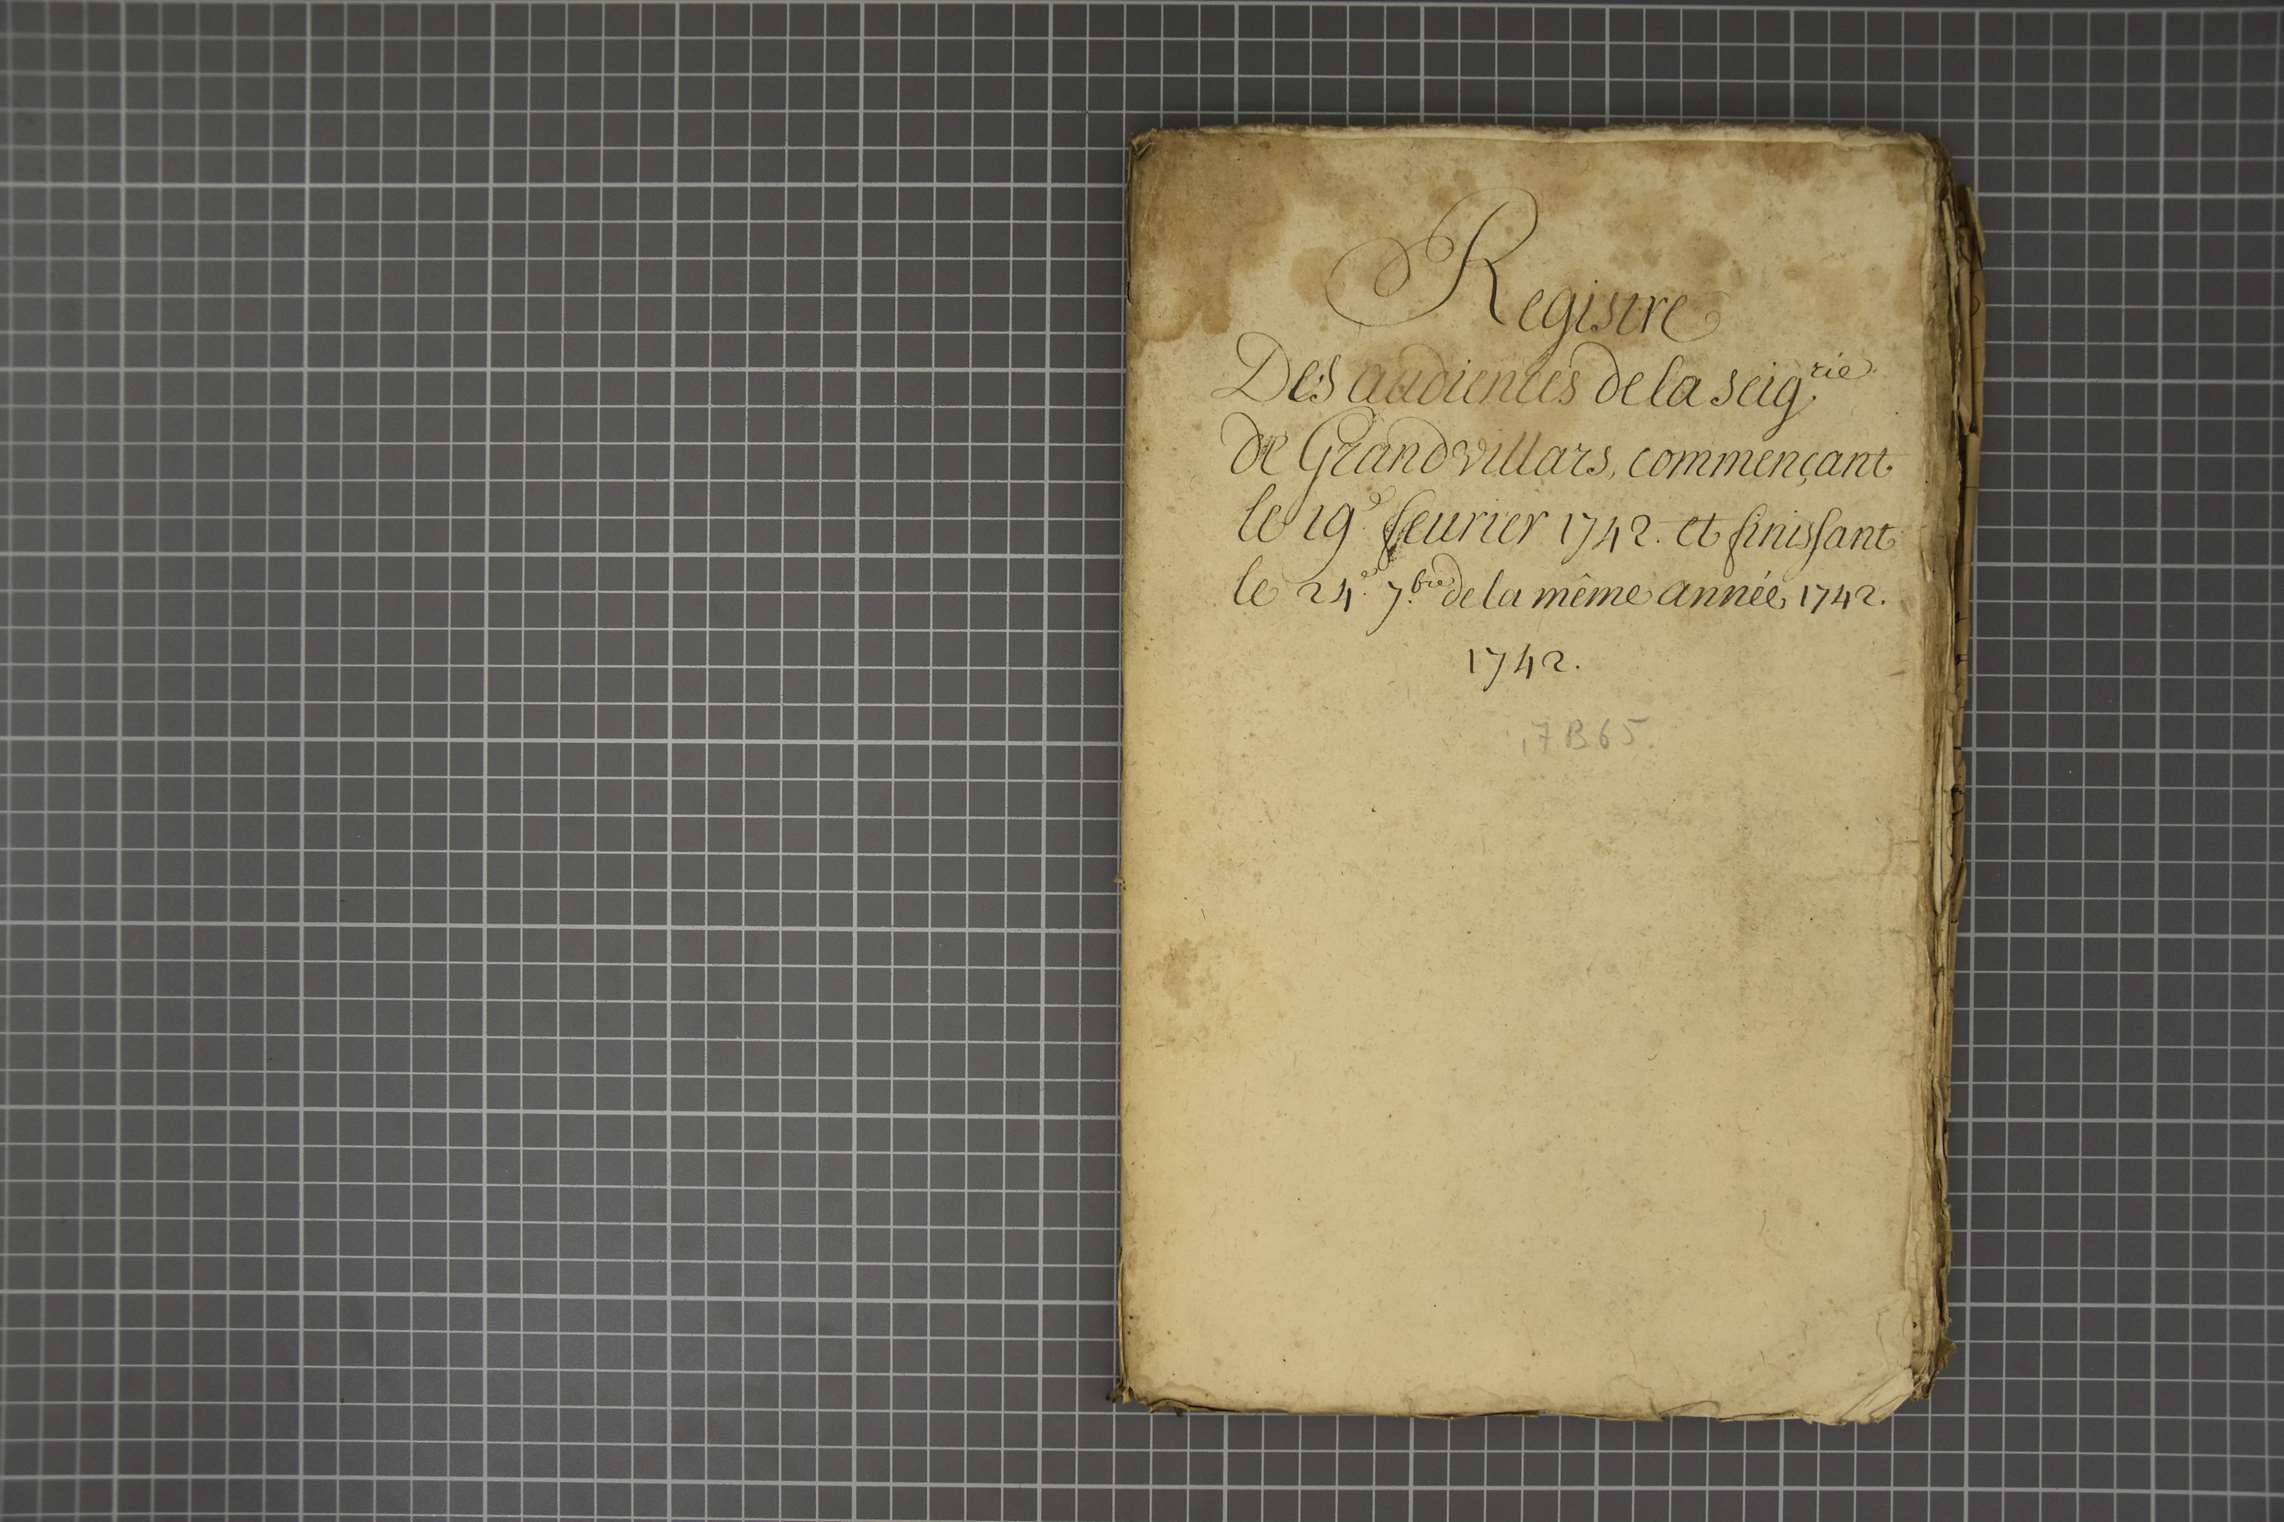 Registre
Des audiences de la seig.rie
de Grandvillars, commençant
le 19.e feurier 1742. et finissant
le 24.e 7.bre de la même année, 1742.
1742.
17B65.